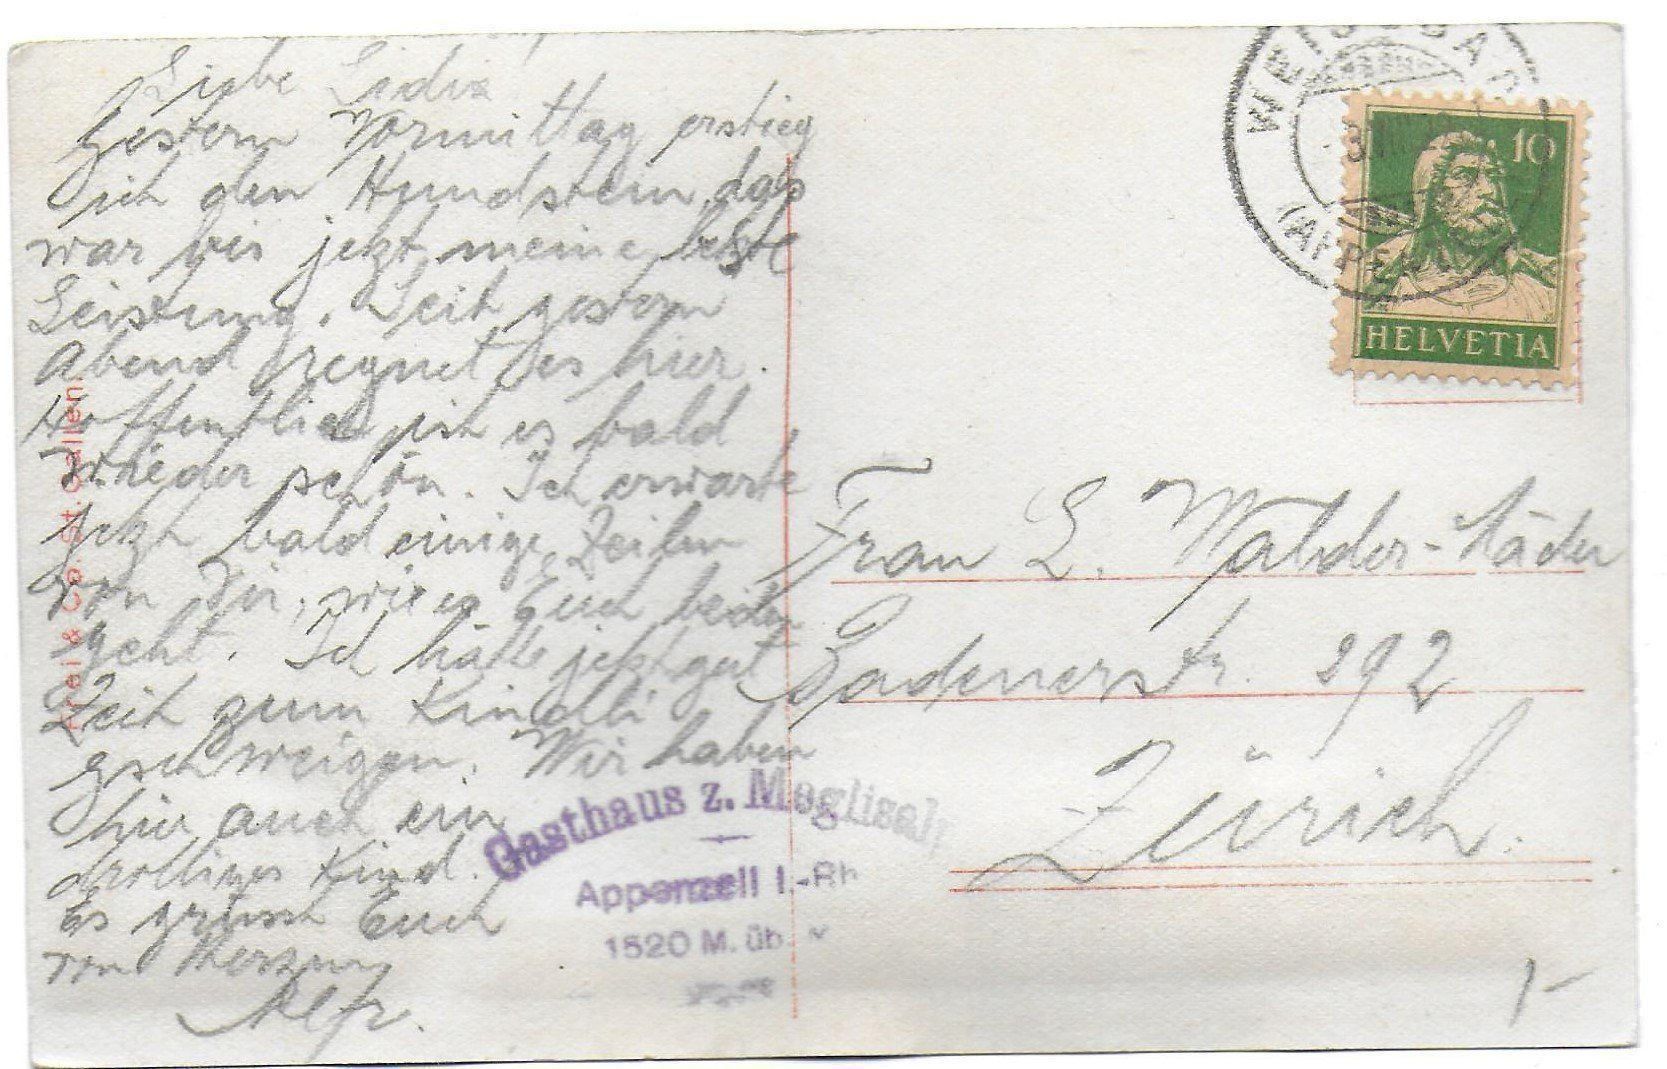 Liebe Lidia
Gestern Vormittag erstieg
ich den Hundstein, das
war bis jetzt meine beste
Leistung. Seit gestern
Abend regnet es hier.
Hoffentlich ist es bald
wieder schön. Ich erwarte
jetzt bald einige Zeilen
von Dir, wie es Euch beiden
geht. Ich hätte jetzt gut
Zeit zum Kindli
gschweigen. Wir haben
hier auch ein
drolliges Kind.
Es grüsst Euch
von Herzen
Alfr.
Frei & Co. St. Gallen.
Gasthaus z. Meglisalp
Appenzell I.-Rh
1520 M. üb.
WEISSBAD
(APPEN
10
HELVETIA
Frau L. Walder-Mäder
Badenerstr. 292
Zürich.